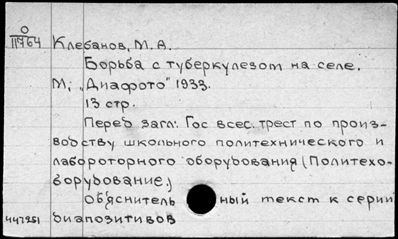 О
11764
Клебанов, М. А.
Борьба с туберкулезом на селе.
М, „Диафото" 1933.
13 стр.
Перед загл: Гос всес. трест по произ-
водству школьного политехнического и
лабороторного оборудования (Политехо-
борудование.)
Объяснитель ный текст к серии
диапозитивов
447251